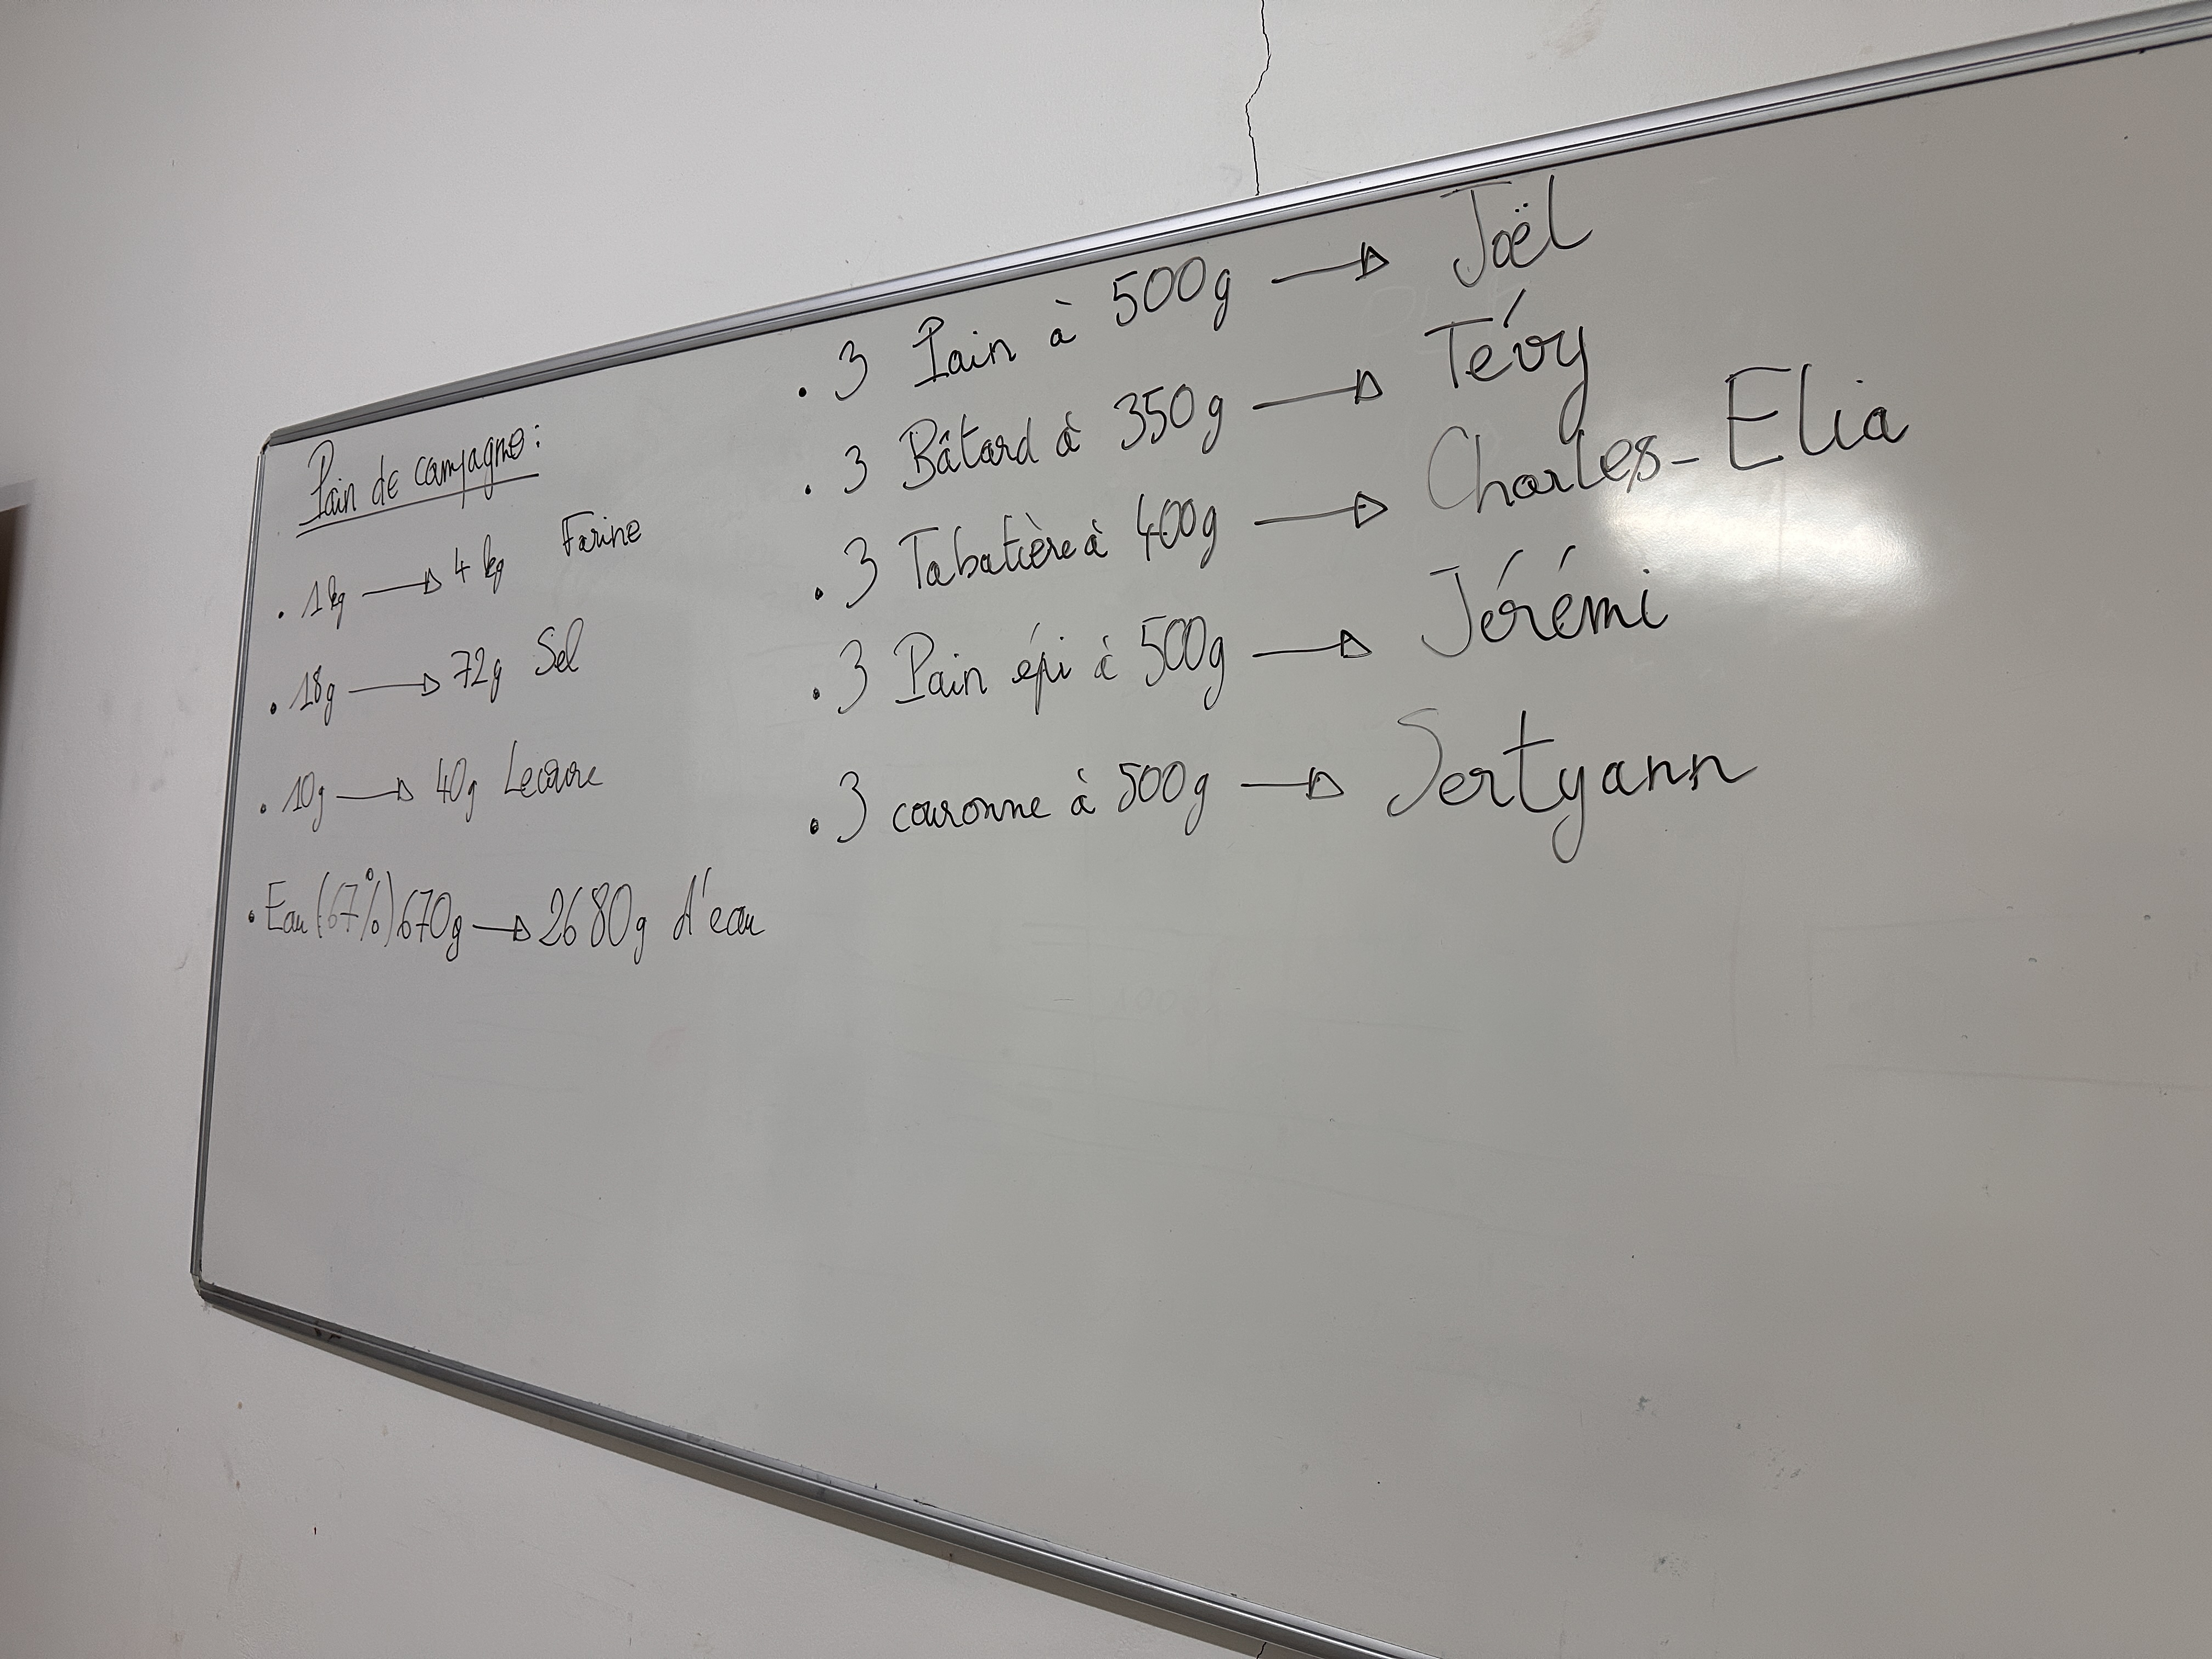 Pain de campagne :
• 1kg → 4 kg Farine
• 18g → 72g Sel
• 10g → 40g Levure
• Eau (67%) 670g → 2680g d'eau
• 3 Pain à 500g → Joël
• 3 Bâtard à 350g → Tévy
• 3 Tabatière à 400g → Charles-Elia
• 3 Pain épi à 500g → Jérémi
• 3 couronne à 500g → Sertyann